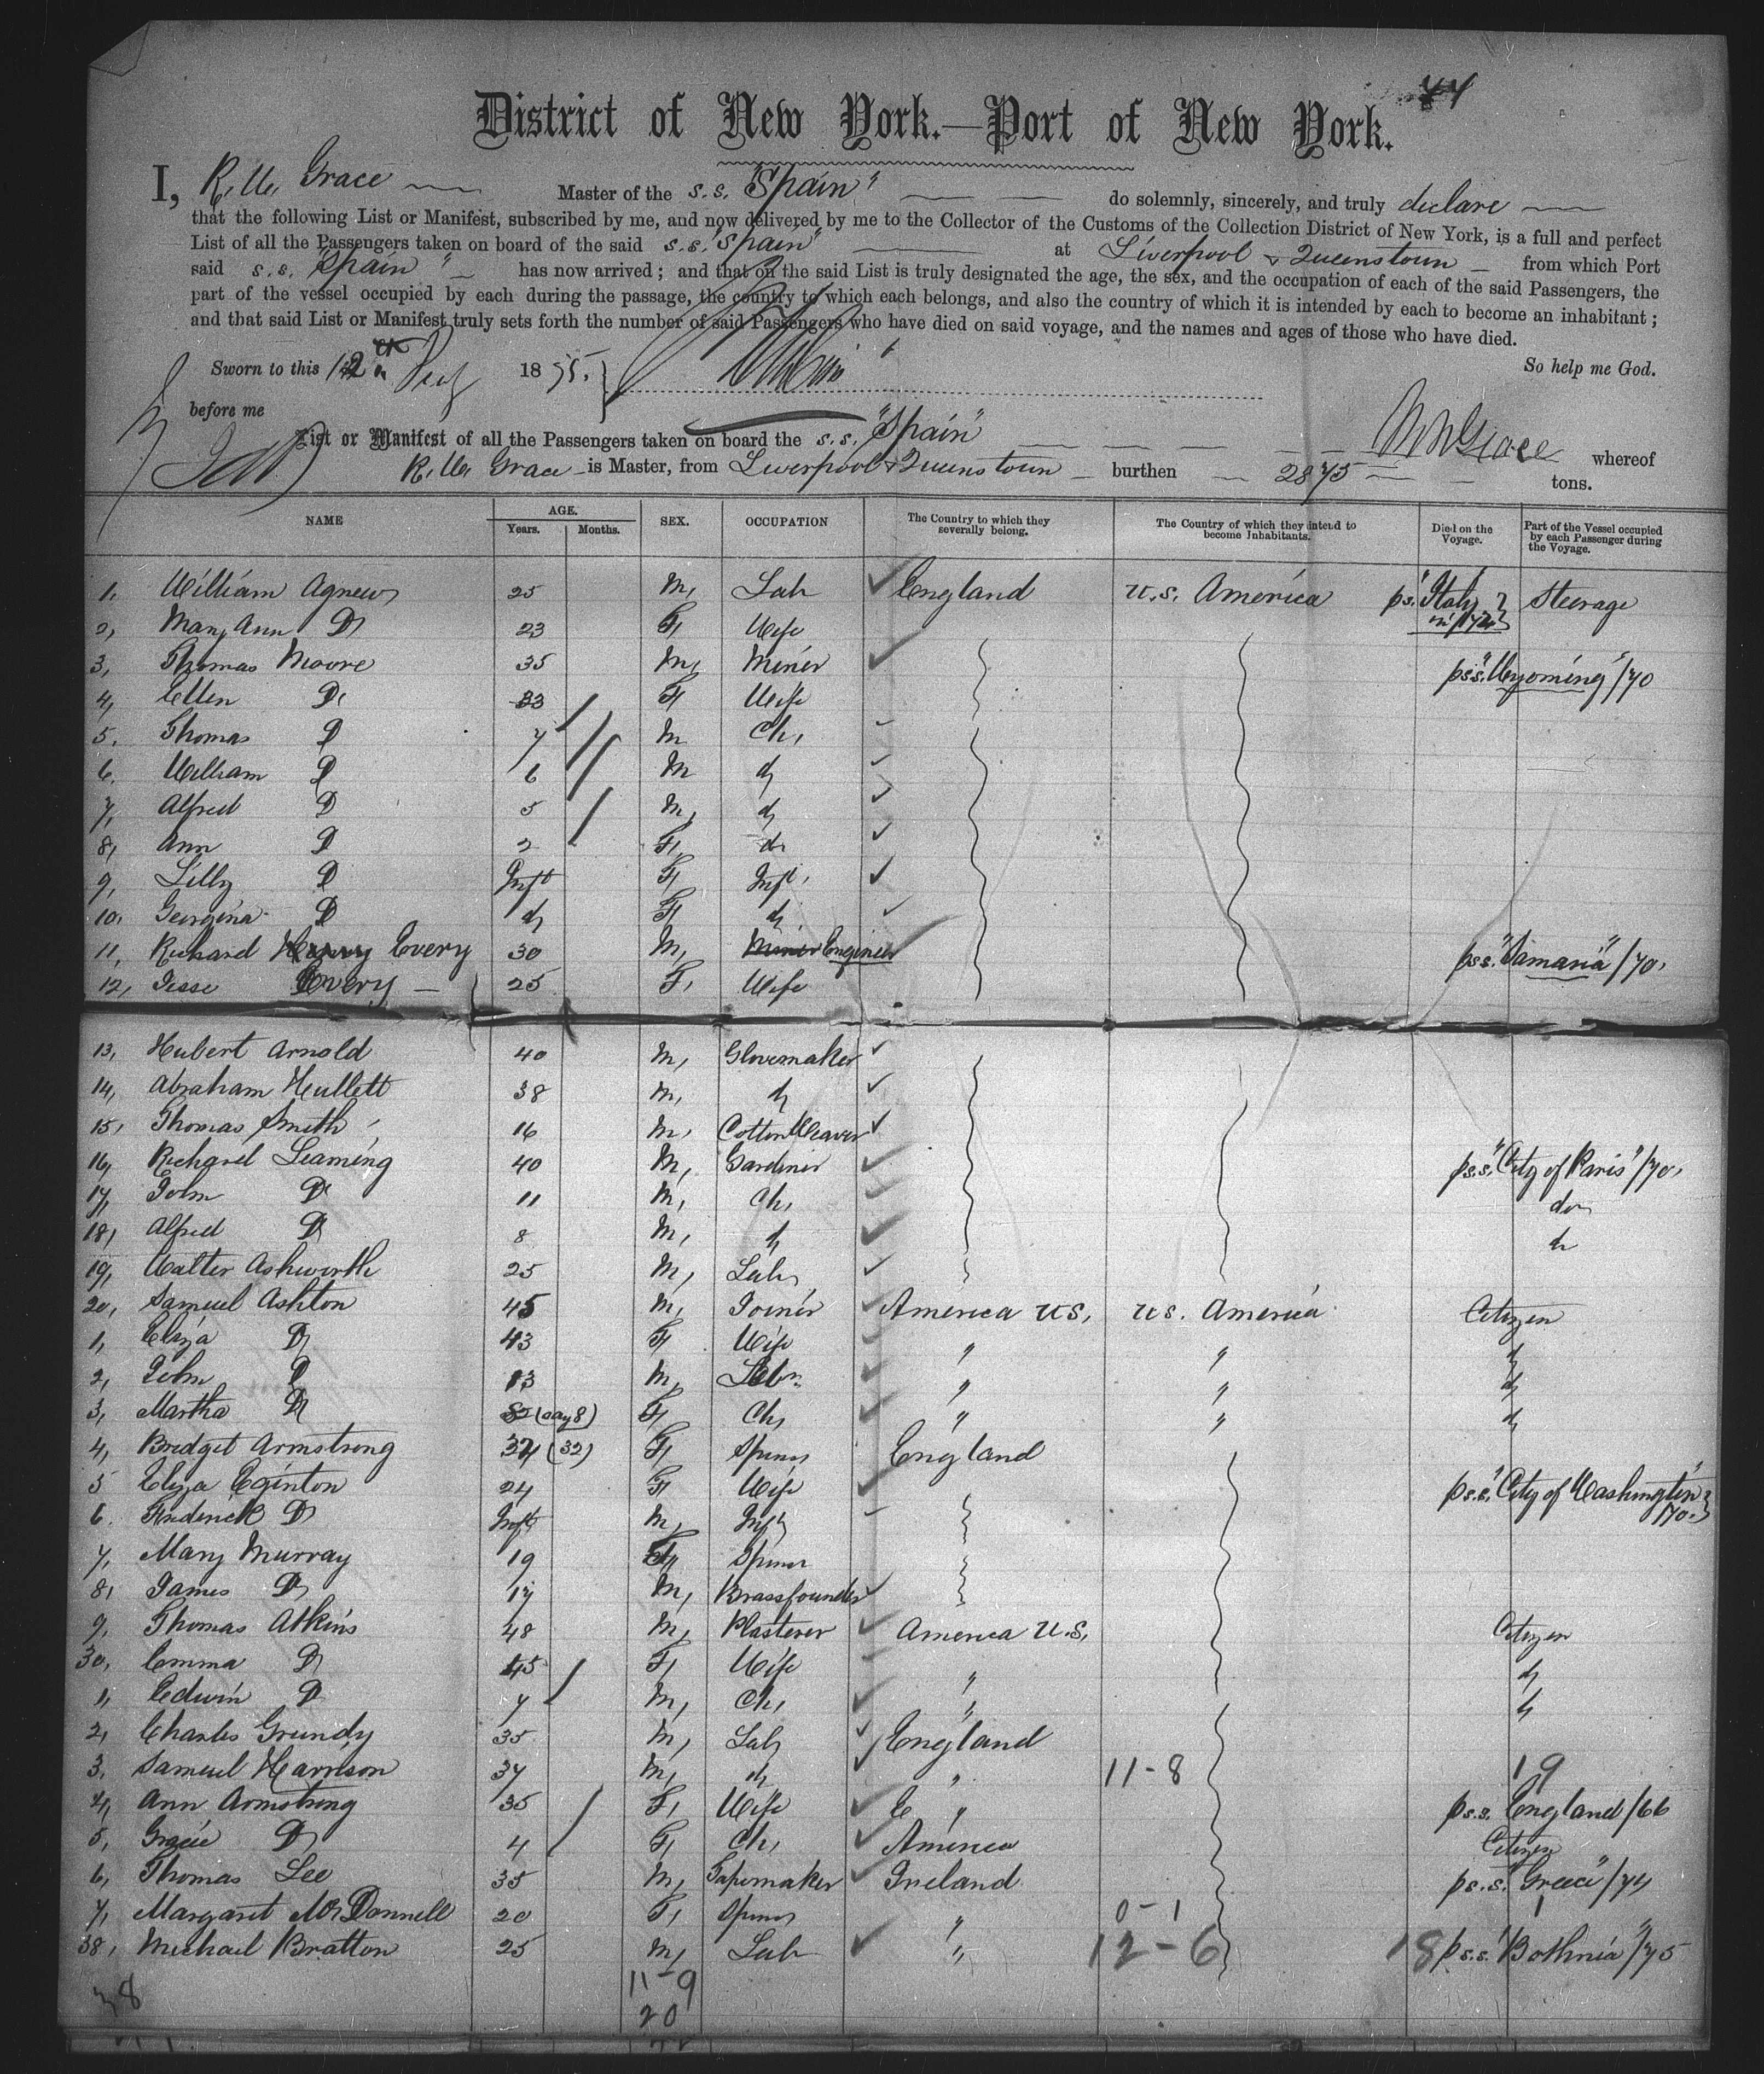 44
District of New York.—Port of New York.
I, R. W. Grace Master of the s.s. "Spain" do solemnly, sincerely, and truly declare
that the following List or Manifest, subscribed by me, and now delivered by me to the Collector of the Customs of the Collection District of New York, is a full and perfect
List of all the Passengers taken on board of the said s.s. "Spain" at Liverpool & Queenstown from which Port
said s.s. "Spain" has now arrived; and that on the said List is truly designated the age, the sex, and the occupation of each of the said Passengers, the
part of the vessel occupied by each during the passage, the country to which each belongs, and also the country of which it is intended by each to become an inhabitant;
and that said List or Manifest truly sets forth the number of said Passengers who have died on said voyage, and the names and ages of those who have died.
Sworn to this 12th 1875. So help me God.
before me
List or Manifest of all the Passengers taken on board the s.s. "Spain" whereof
R. W. Grace is Master, from Liverpool & Queenstown burthen 2875 tons.
NAME AGE. Years. Months. SEX. OCCUPATION The Country to which they severally belong. The Country of which they intend to become Inhabitants. Died on the Voyage. Part of the Vessel occupied by each Passenger during the Voyage.
1. William Agnew 25 M, Lab England U.S. America ps. "Italy" in /72 Steerage
2, Mary Ann Do 23 F, Wife
3, Thomas Moore 35 M, Miner pss. "Wyoming" /70
4, Ellen Do 33 F, Wife
5. Thomas D 7 M Ch,
6. William D 6 M do
7, Alfred D 5 M, do
8, Ann D 2 F, do
9, Lilly D Inft F, Inft,
10. Georgina D do F, do
11, Richard Henry Every 30 M, Miner Engineer pss. "Samaria" /70,
12, Jesse Every 25 F, Wife
13, Hubert Arnold 40 M, Glovemaker
14, Abraham Hullett 38 M, do
15, Thomas Smith 16 M, Cotton Weaver
16, Richard Leaming 40 M, Gardiner pss. "City of Paris" /70,
17, John Do 11 M, Ch, do
18, Alfred Do 8 M, do do
19, Walter Ashworth 25 M, Lab
20, Samuel Ashton 45 M, Joiner America US, US. America Citizen
1, Eliza Do 43 F Wife " " do
2, John D 13 M, Labr " " do
3, Martha Do (say 8) F, Ch, " " do
4, Bridget Armstrong 34 (32) F, Spinr England
5 Eliza Eginton 24 F Wife pss. "City of Washington" /70.
6. Frederick Do Inft M, Inft
7, Mary Murray 19 F, Spinr
8, James Do 17 M, Brassfounder
9, Thomas Atkins 48 M, Plasterer America U.S, Citizen
30, Emma Do 45 F, Wife " do
1, Edwin D 7 M, Ch, " do
2, Charles Grundy 35 M, Lab England
3, Samuel Harrison 37 M, do " 11-8 19
4, Ann Armstrong 35 F, Wife E " pss. England /66
5, Gracie Do 4 F, Ch, America Citizen
6, Thomas Lee 35 M, Tapemaker Ireland ps.s. "Greece" /74
7, Margaret McDonnell 20 F, Spinr " 0-1 1
38, Michael Bratton 25 M, Lab " 12-6 18 ps.s. "Bothnia" /75
11-9
38 20